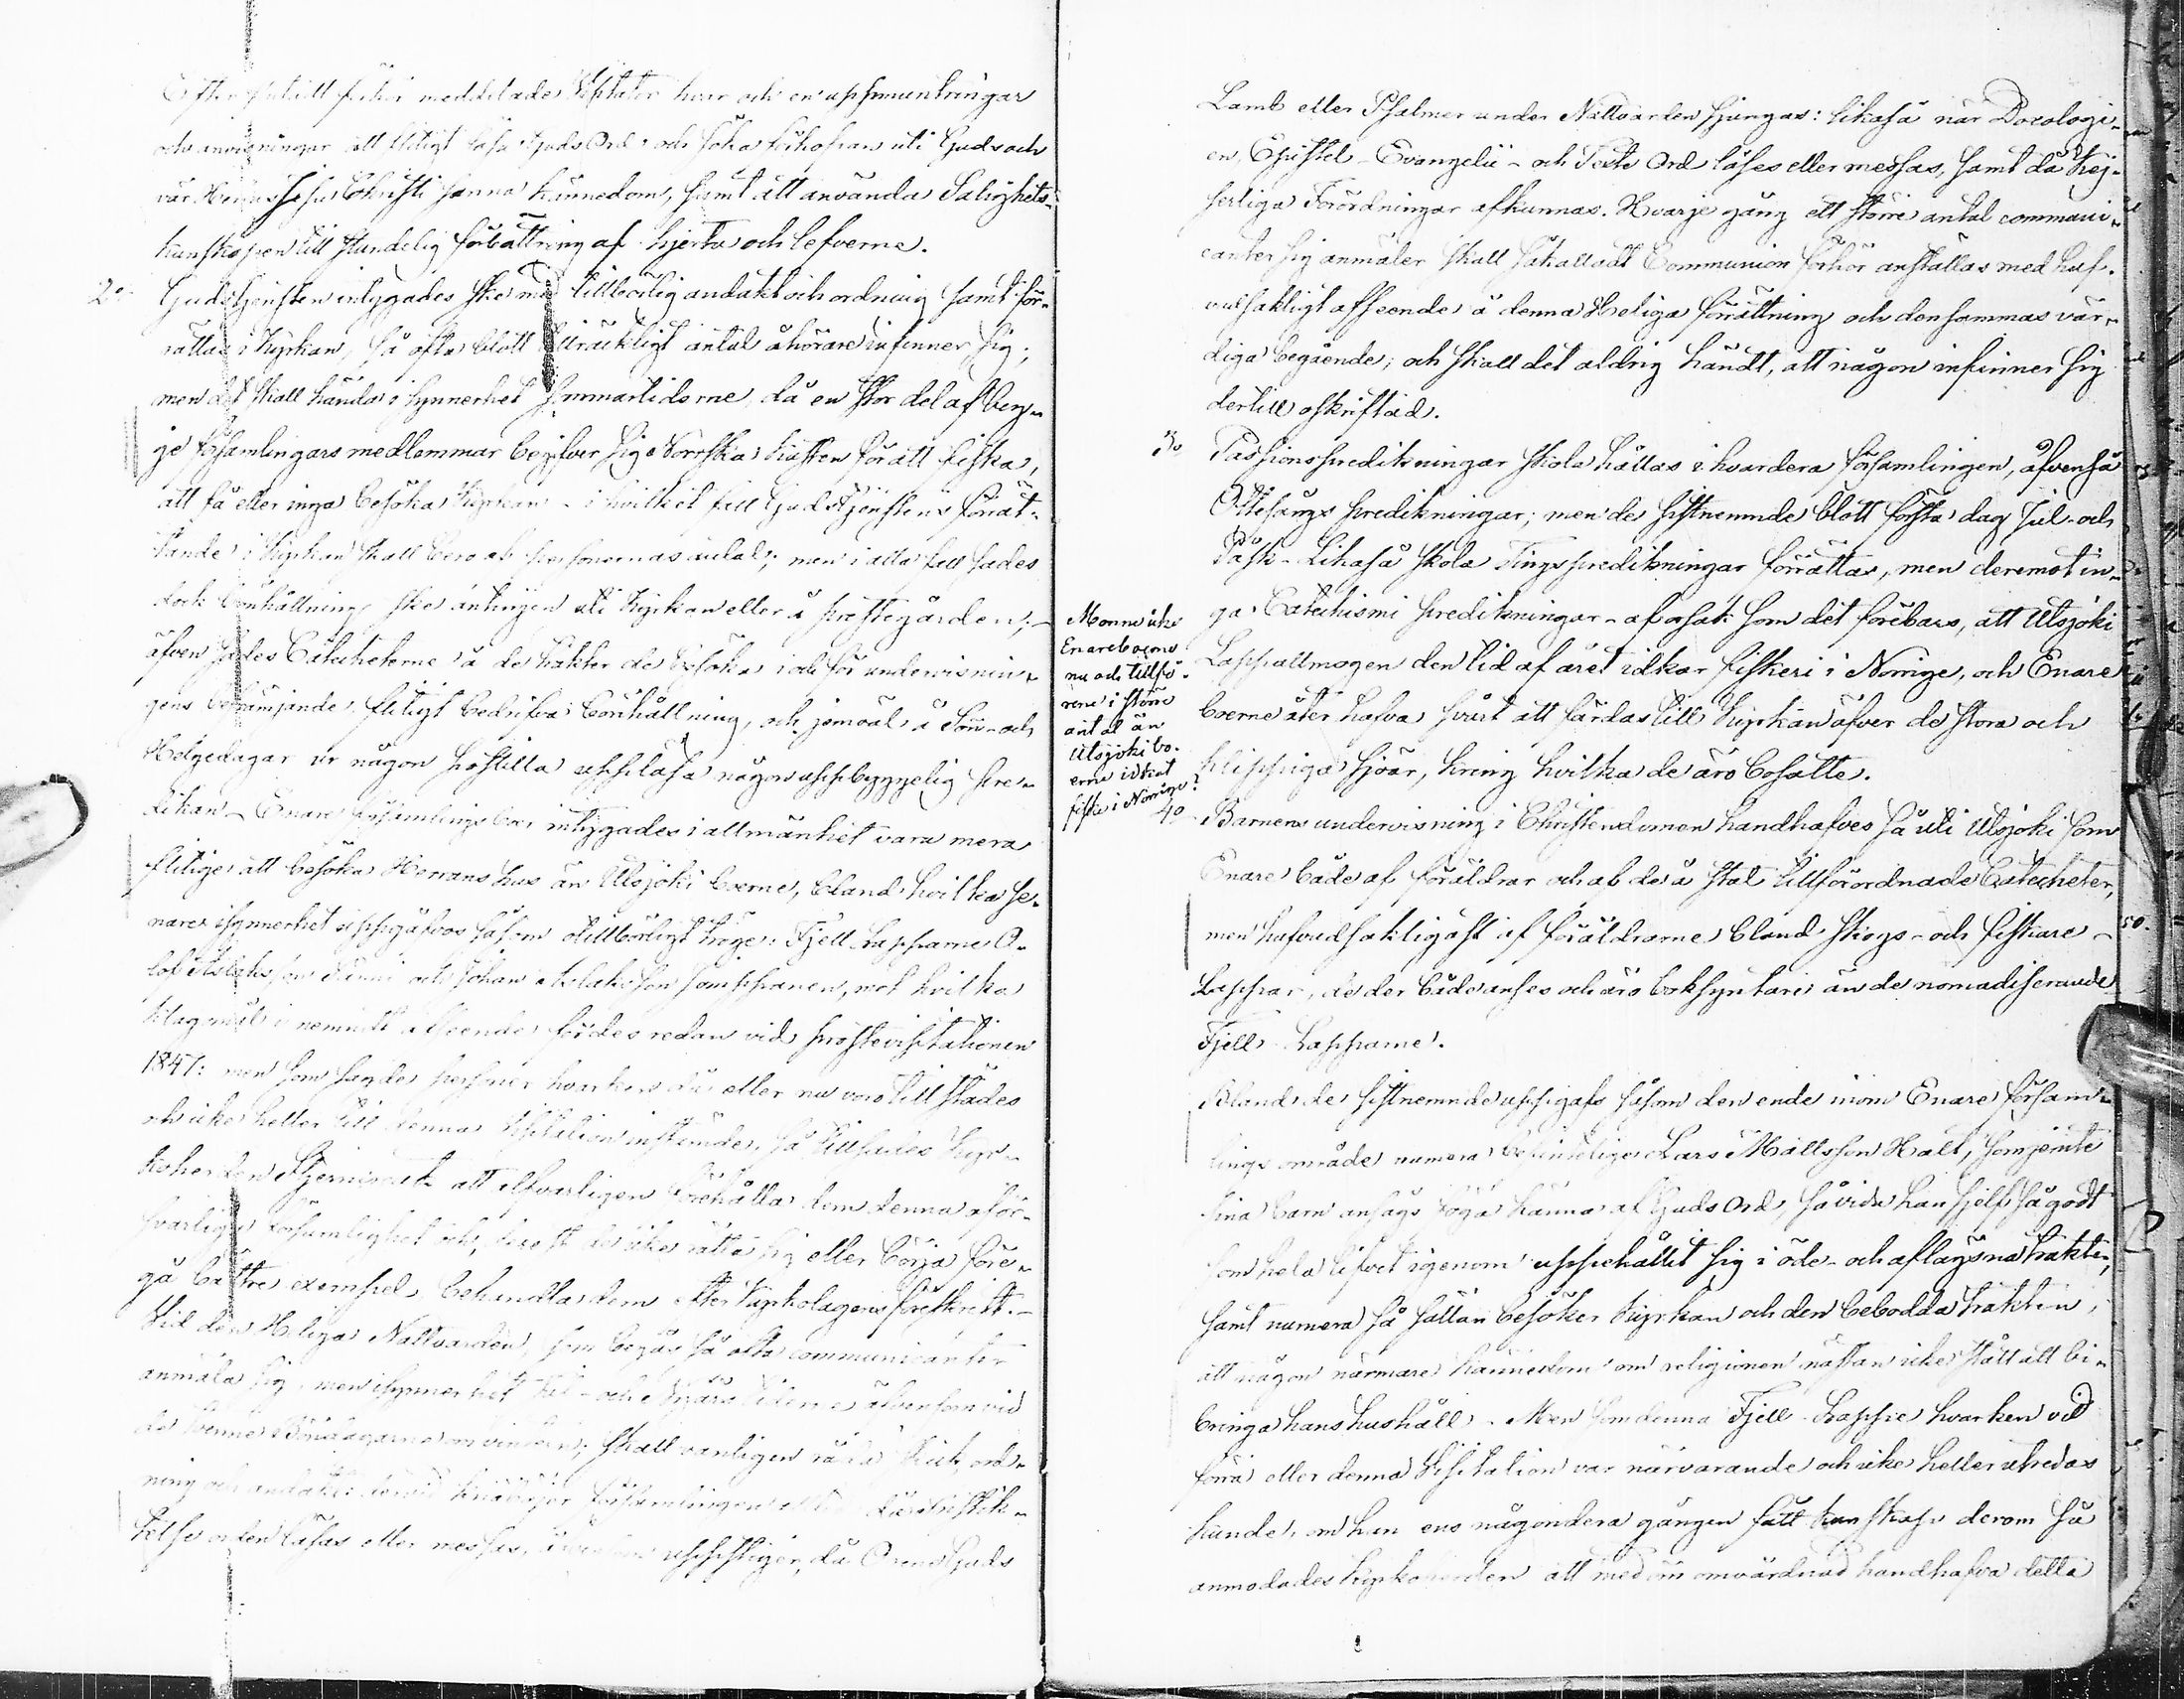 Efter slutadt förhör meddelades Visitator hvar och en uppmuntringar
och anvisningar att flitigt läsa Guds Ord och söka förkofran uti Guds och
vår Herras Jesu Christi sanna kännedom, samt att använda Salighets-
kunskapen till stundelig förbättring af hjerta och lefverne.
2o Gudstjensten intygades ske med tillbörlig andakt och ordning samt för-
rättas i Kyrkan, så ofta blott tillräckligt antal åhörare infinner sig;
men det skall hända i synnerhet sommartiderne, då en stor del af beg-
ge församlingars medlemmar begifver sig Norrska kusten för att fiska,
att få eller inga besöka Kyrkan - i hvilket fall Gudstjenstens förrät-
tande i Kyrkan skall bero af personernas antal; men i alla fall sades
dock bönhållning ske antingen uti Kyrkan eller å prestegården; -
äfven sades Catecheterne å de trakter de besöka i och för undervisnin-
gens befrämjande flitigt bedrifva bönhållning, och jemväl å Sön- och
Helgedagar ur någon postilla uppläsa någon uppbyggelig pre-
dikan - Enare församlings boer intygades i allmänhet vara mera
flitige att besöka Herrans hus än Utsjoki boerne, bland hvilka se-
nare i synnerhet uppgåfvos såsom otillbörligt tröge: Fjell Lapparne O-
lof Aslaksson och Johan Aslaksson, mot hvilka
klagomål i nemndt afseende fördes redan vid prostevisitationen
1847: men som sagde personer hvarken då eller nu voro tillstädes
och icke heller till denna Visitation instämde, så tillsades Kyr-
koherden Stjerncreutz att alfvarligen förehålla dem denna oför-
svarliga försumlighet och, derest de icke rätta sig eller börja före-
gå bättre exempel, behandla dem efter Kyrkolagens föreskrift. -
Vid den Heliga Nattvarden, som begås så ofta communicanter
anmäla sig, men i synnerhet Jul- och tiderne äfvensom vid
de tvenne Bönedagarne om vintern; skall vanligen råda skick, ord-
ning och andakt: dervid knäböjer församlingen
telse orden läsas eller messas, uppstiger, då O rena Guds
Lamb eller Psalmer under Nattvarden sjungas: likaså när Doxologi-
en, Epistel- Evangelii- och Texte Ord läses eller messas, samt då Kej-
serliga Förordningar afkunnas. Hvarje gång ett större antal communi-
canter sig anmäler skall såkalladt Communion förhör anställas med huf-
vudsakligt afseende å denna Heliga förrättning och densammas vär-
diga begående; och skall det aldrig händt, att någon infinner sig
dertill oskriftad.
3o Passionspredikningar skola hållas i hvardera församlingen, äfvenså
Ottesångs predikningar; men de sistnemnde blott första dag Jul- och
Påsk - Likaså skola Tingspredikningar förrättas, men deremot in-
ga Catechismi predikningar - af orsak som det förebars, att Utsjoki
Lappallmogen den tid af året idkar fiskeri i Norrige, och Enare
boerne åter hafva svårt att färdas till Kyrkan öfver de stora och
klippiga sjöar, kring hvilka de äro bosatte.
Monne icke
Enareboerne
nu och tillfö-
rene i större
antal än
Utsjokibo-
erne idkat
fiske i Norrige?
4o Barnens undervisning i Christendomen handhafves så uti Utsjoki som
Enare både af föräldrar och af de å stat tillförordnade Catecheter,
men hufvudsakligast af föräldrarne bland Skogs- och fiskare -
Lappar, de der både anses och äro boksyntare än de nomadiserande
Fjell-Lapparne.
Bland de sistnemnde uppgafs såsom den ende inom Enare försam-
lings område numera befintlige Lars Mattsson Halt, som jemte
sina barn ansågs föga känna af Guds Ord, såvida han sjelf så godt
som hela lifvet igenom uppehållit sig i öde- och aflägsna trakter,
samt numera så sällan besöker Kyrkan och den bebodda trakten,
att någon närmare kännedom om religionen nästan icke stått att bi-
bringa hans hushåll - Men som denna Fjell-Lappe hvarken vid
förra eller denna Visitation var närvarande och icke heller utredas
kunde, om han ens någondera gången fått kunskap derom så
anmodades Kyrkoherden att med öm omvårdnad handhafva detta